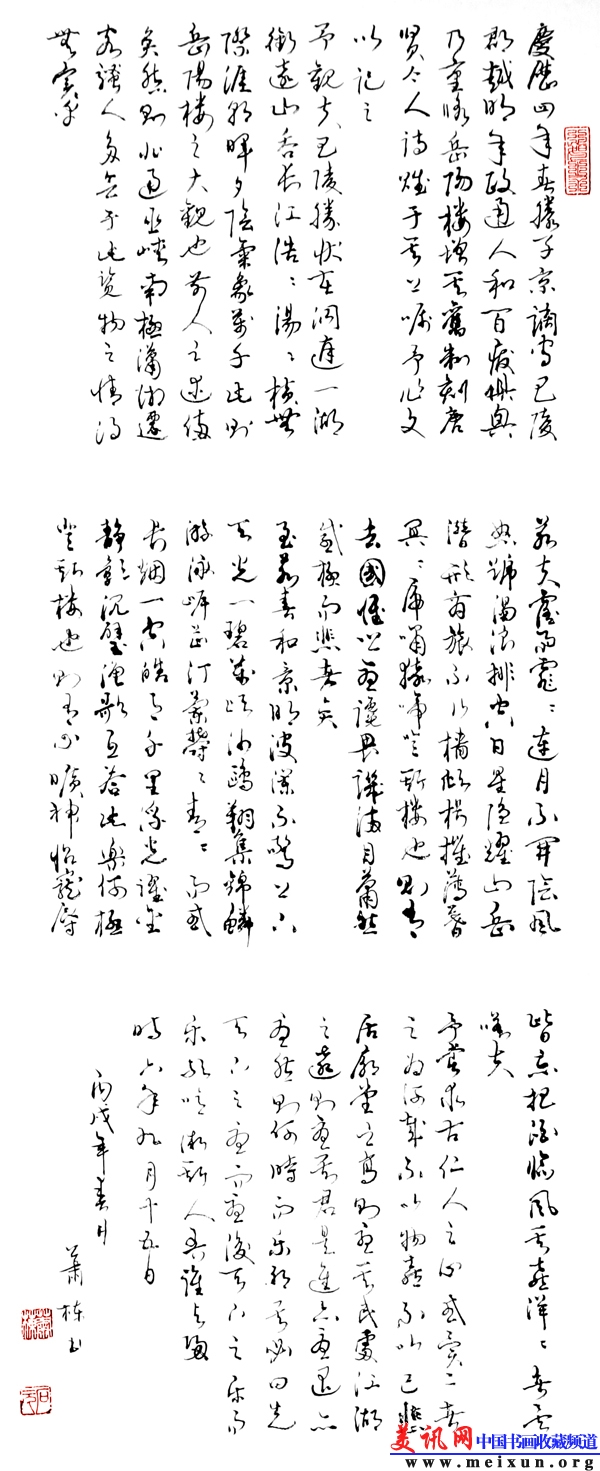 慶歷四年春滕子京謫守巴陵
郡越明年政通人和百廢俱興
乃重脩岳陽樓增其舊制刻唐
賢今人詩賦于其上囑予作文
以記之
予觀夫巴陵勝狀在洞庭一湖
銜遠山吞長江浩〻湯〻橫無
際涯朝暉夕陰氣象萬千此則
岳陽樓之大觀也前人之述備
矣然則北通巫峽南極瀟湘遷
客騷人多會于此覽物之情得
無異乎
若夫霪雨霏〻連月不開陰風
怒號濁浪排空日星隱耀山岳
潛形商旅不行檣傾楫摧薄暮
冥〻虎嘯猿啼登斯樓也則有
去國懷鄉憂讒畏譏滿目蕭然
感極而悲者矣
至若春和景明波瀾不驚上下
天光一碧萬頃沙鷗翔集錦鱗
游泳岸芷汀蘭鬱〻青〻而或
長烟一空皓月千里浮光躍金
靜影沉璧漁歌互答此樂何極
登斯樓也則有心曠神怡寵辱
皆忘把酒臨風其喜洋〻者矣
嗟夫
予嘗求古仁人之心或異二者
之為何哉不以物喜不以己悲
居廟堂之高則憂其民處江湖
之遠則憂其君是進亦憂退亦
憂然則何時而樂耶其必曰先
天下之憂而憂後天下之樂而
樂歟噫微斯人吾誰與歸
時六年九月十五日
丙戌年春月
蕭棟書
美讯网 中国书画收藏频道
www.meixun.org